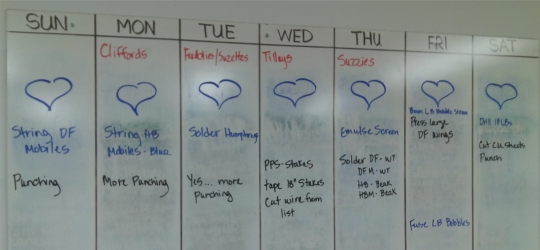 SUN.
MON
TUE
WED
THU
FRI
SAT
Cliffords
Freddies/Suzettes
Tillays
Suzzies
String DF
Mobiles
Punching
String HB
Mobiles - Blue
More Punching
Solder Humphrey
Yes... more
Punching
PPS-Stakes
tape 18" Stakes
Cut wire from
list
Emulse Screen
Solder DF - WT
DFM - WT
HB - Beak
HBM - Beak
LB Bobble Screen
Press large
DF Wings
Fuse LB Bobbles
Cut CU Sheets
Punch